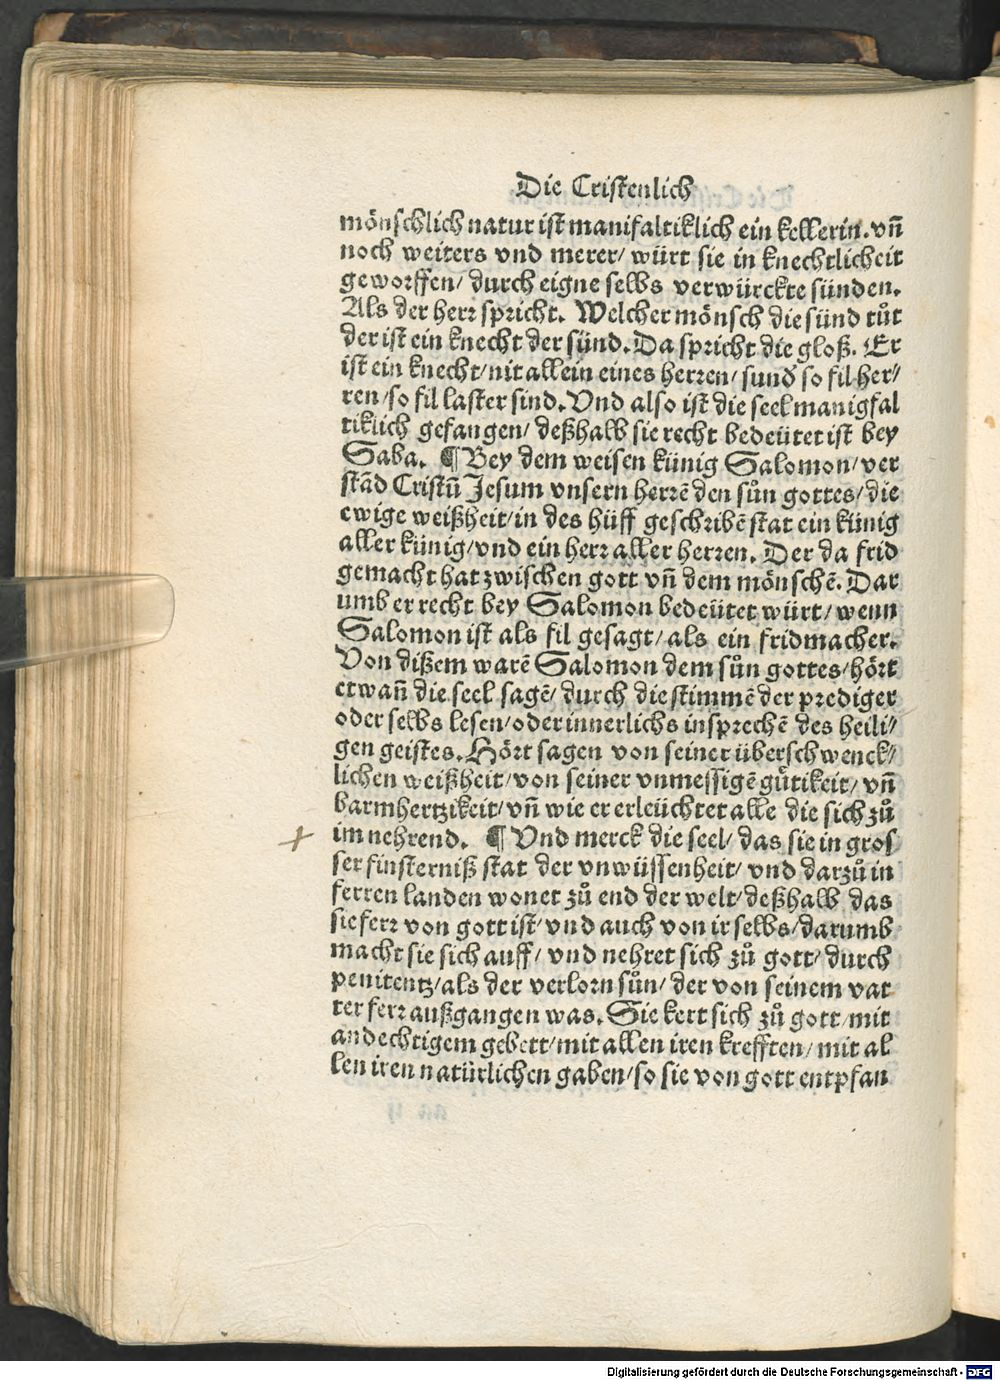 Die Cristenlich
mönschlich natur ist manifaltiklich ein kellerin. vn̄
noch weiters vnd merer/ würt sie in knechtlicheit
geworffen/ durch eigne selbs verwürckte sünden.
Als der herr spricht. Welcher mönsch die sünd tůt
der ist ein knecht der sünd. Da spricht die gloß. Er
ist ein knecht/ nit allein eines herren/ sund̕ so fil her⸗
ren/ so fil laster sind. Vnd also ist die seel manigfal
tiklich gefangen/ deßhalb sie recht bedeütet ist bey
Saba. ¶ Bey dem weisen künig Salomon/ ver
stād Cristū Jesum vnsern herrē den sůn gottes/ die
ewige weißheit/ in des hüff geschribē stat ein künig
aller künig/ vnd ein herr aller herren. Der da frid
gemacht hat zwischen gott vn̄ dem mönschē. Dar
umb er recht bey Salomon bedeütet würt/ wenn
Salomon ist als fil gesagt/ als ein fridmacher.
Von dißem warē Salomon dem sůn gottes/ hört
etwan̄ die seel sagē/ durch die stimmē der prediger
oder selbs lesen/ oder innerlichs insprechē des heili⸗
gen geistes. Hört sagen von seiner überschwenck⸗
lichen weißheit/ von seiner vnmessigē gůtikeit/ vn̄
barmhertzikeit/ vn̄ wie er erleüchtet alle die sich zů
im nehrend. ¶ Vnd merck die seel/ das sie in gros
ser finsterniß stat der vnwüssenheit/ vnd darzů in
ferren landen wonet zů end der welt/ deßhalb das
sie ferr von gott ist/ vnd auch von ir selbs/ darumb
macht sie sich auff/ vnd nehret sich zů gott/ durch
penitentz/ als der verlorn sůn/ der von seinem vat
ter ferr außgangen was. Sie kert sich zů gott/ mit
andechtigem gebett/ mit allen iren krefften/ mit al
len iren natürlichen gaben/ so sie von gott entpfan
Digitalisierung gefördert durch die Deutsche Forschungsgemeinschaft - DFG